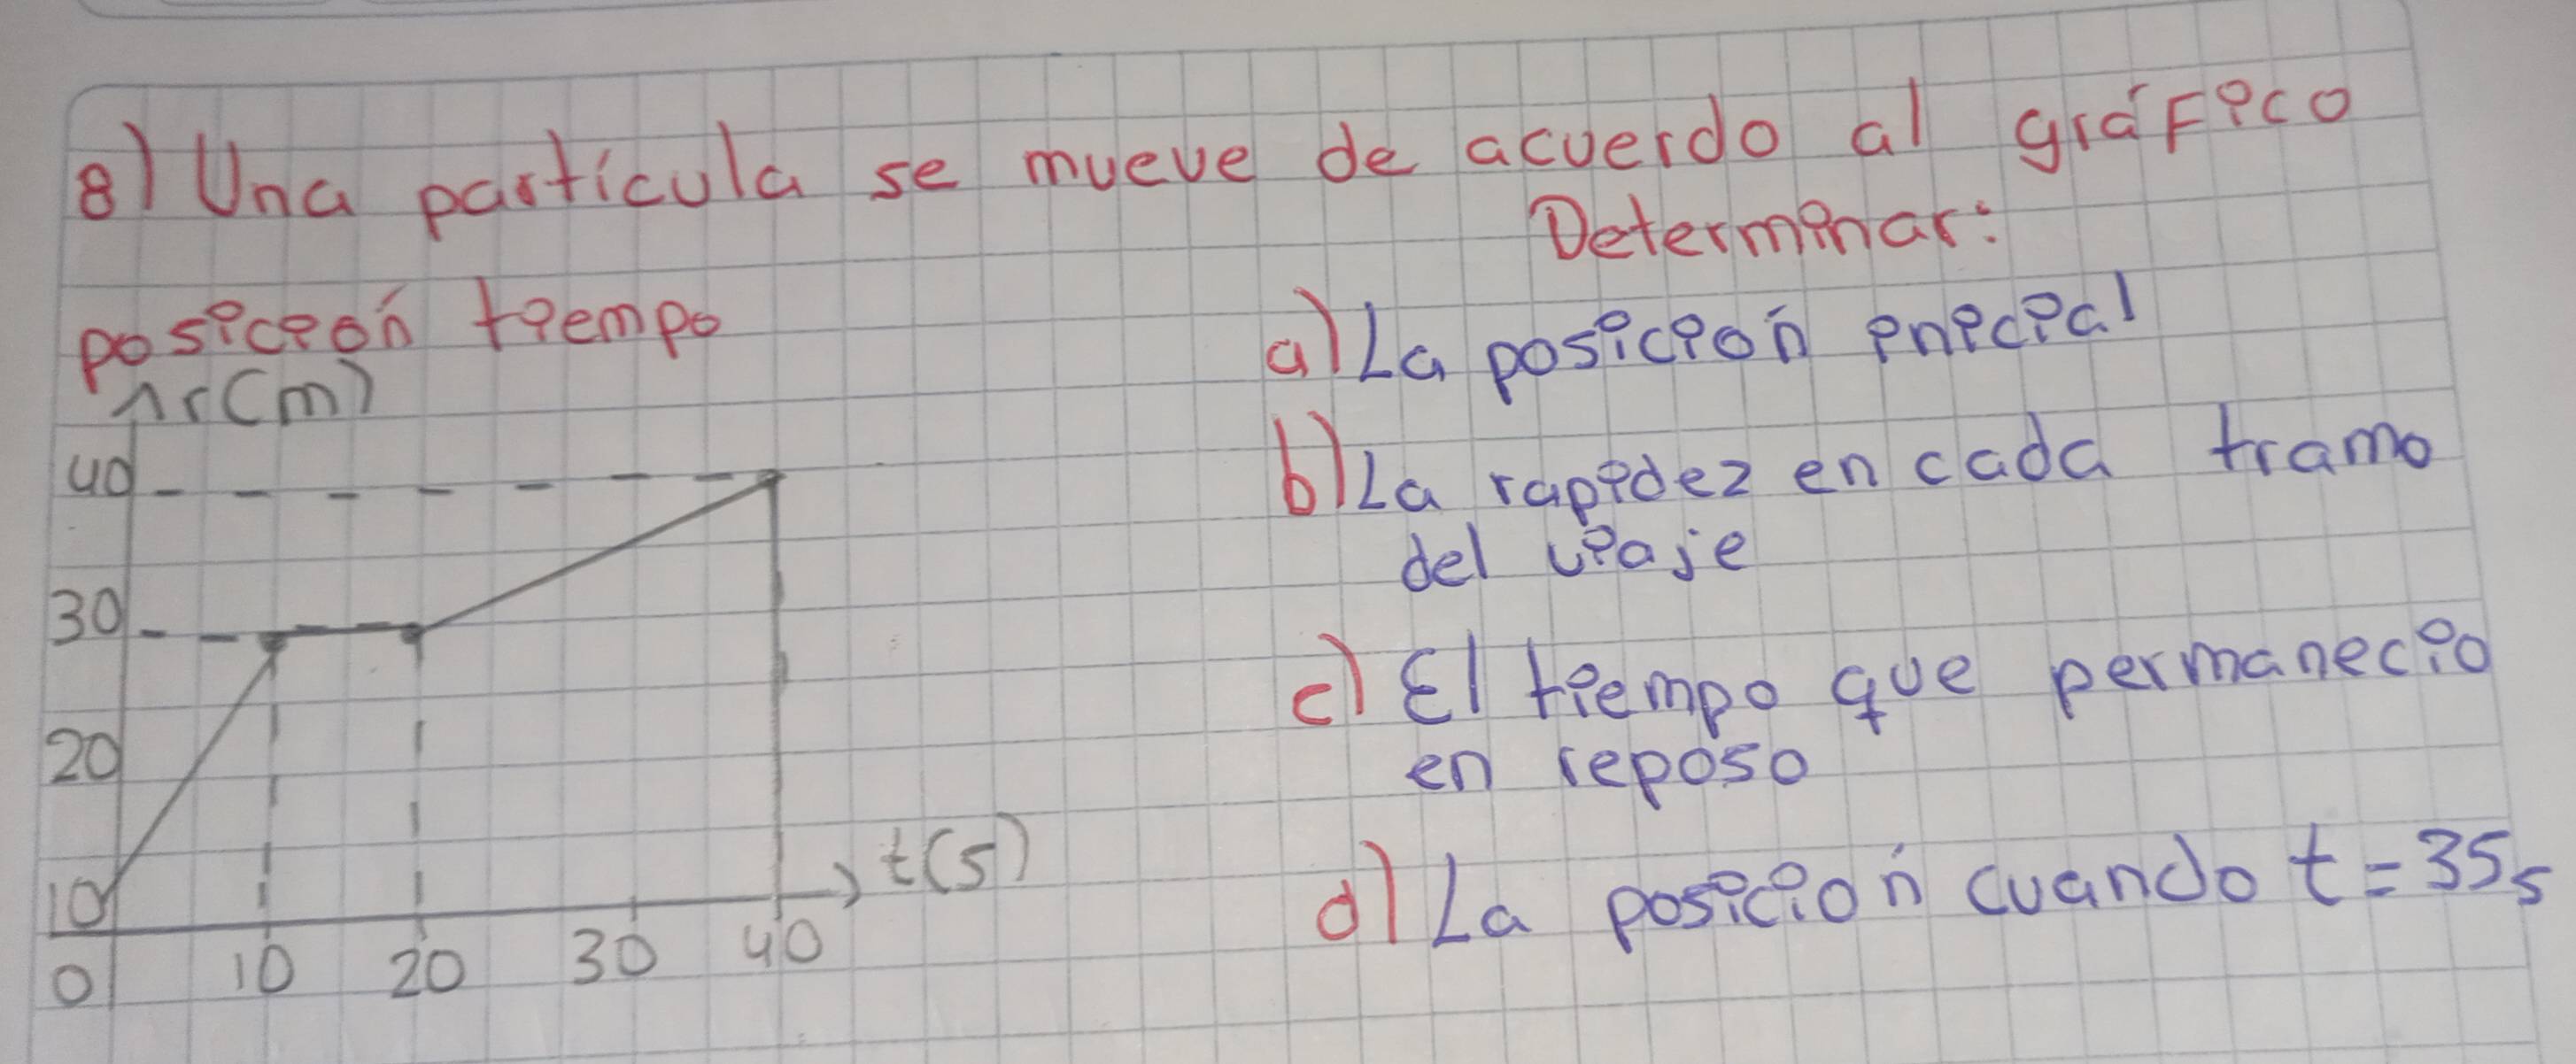 8) Una partícula se mueve de acuerdo al gráfico
Determinar:
posición tiempo
r(m)
40
30
20
10
0
10
20
30
40
t(s)
a) La posición inicial
b) La rapidez en cada tramo
del viaje
c) El tiempo que permanecio
en reposo
d) La posición cuando t = 35s